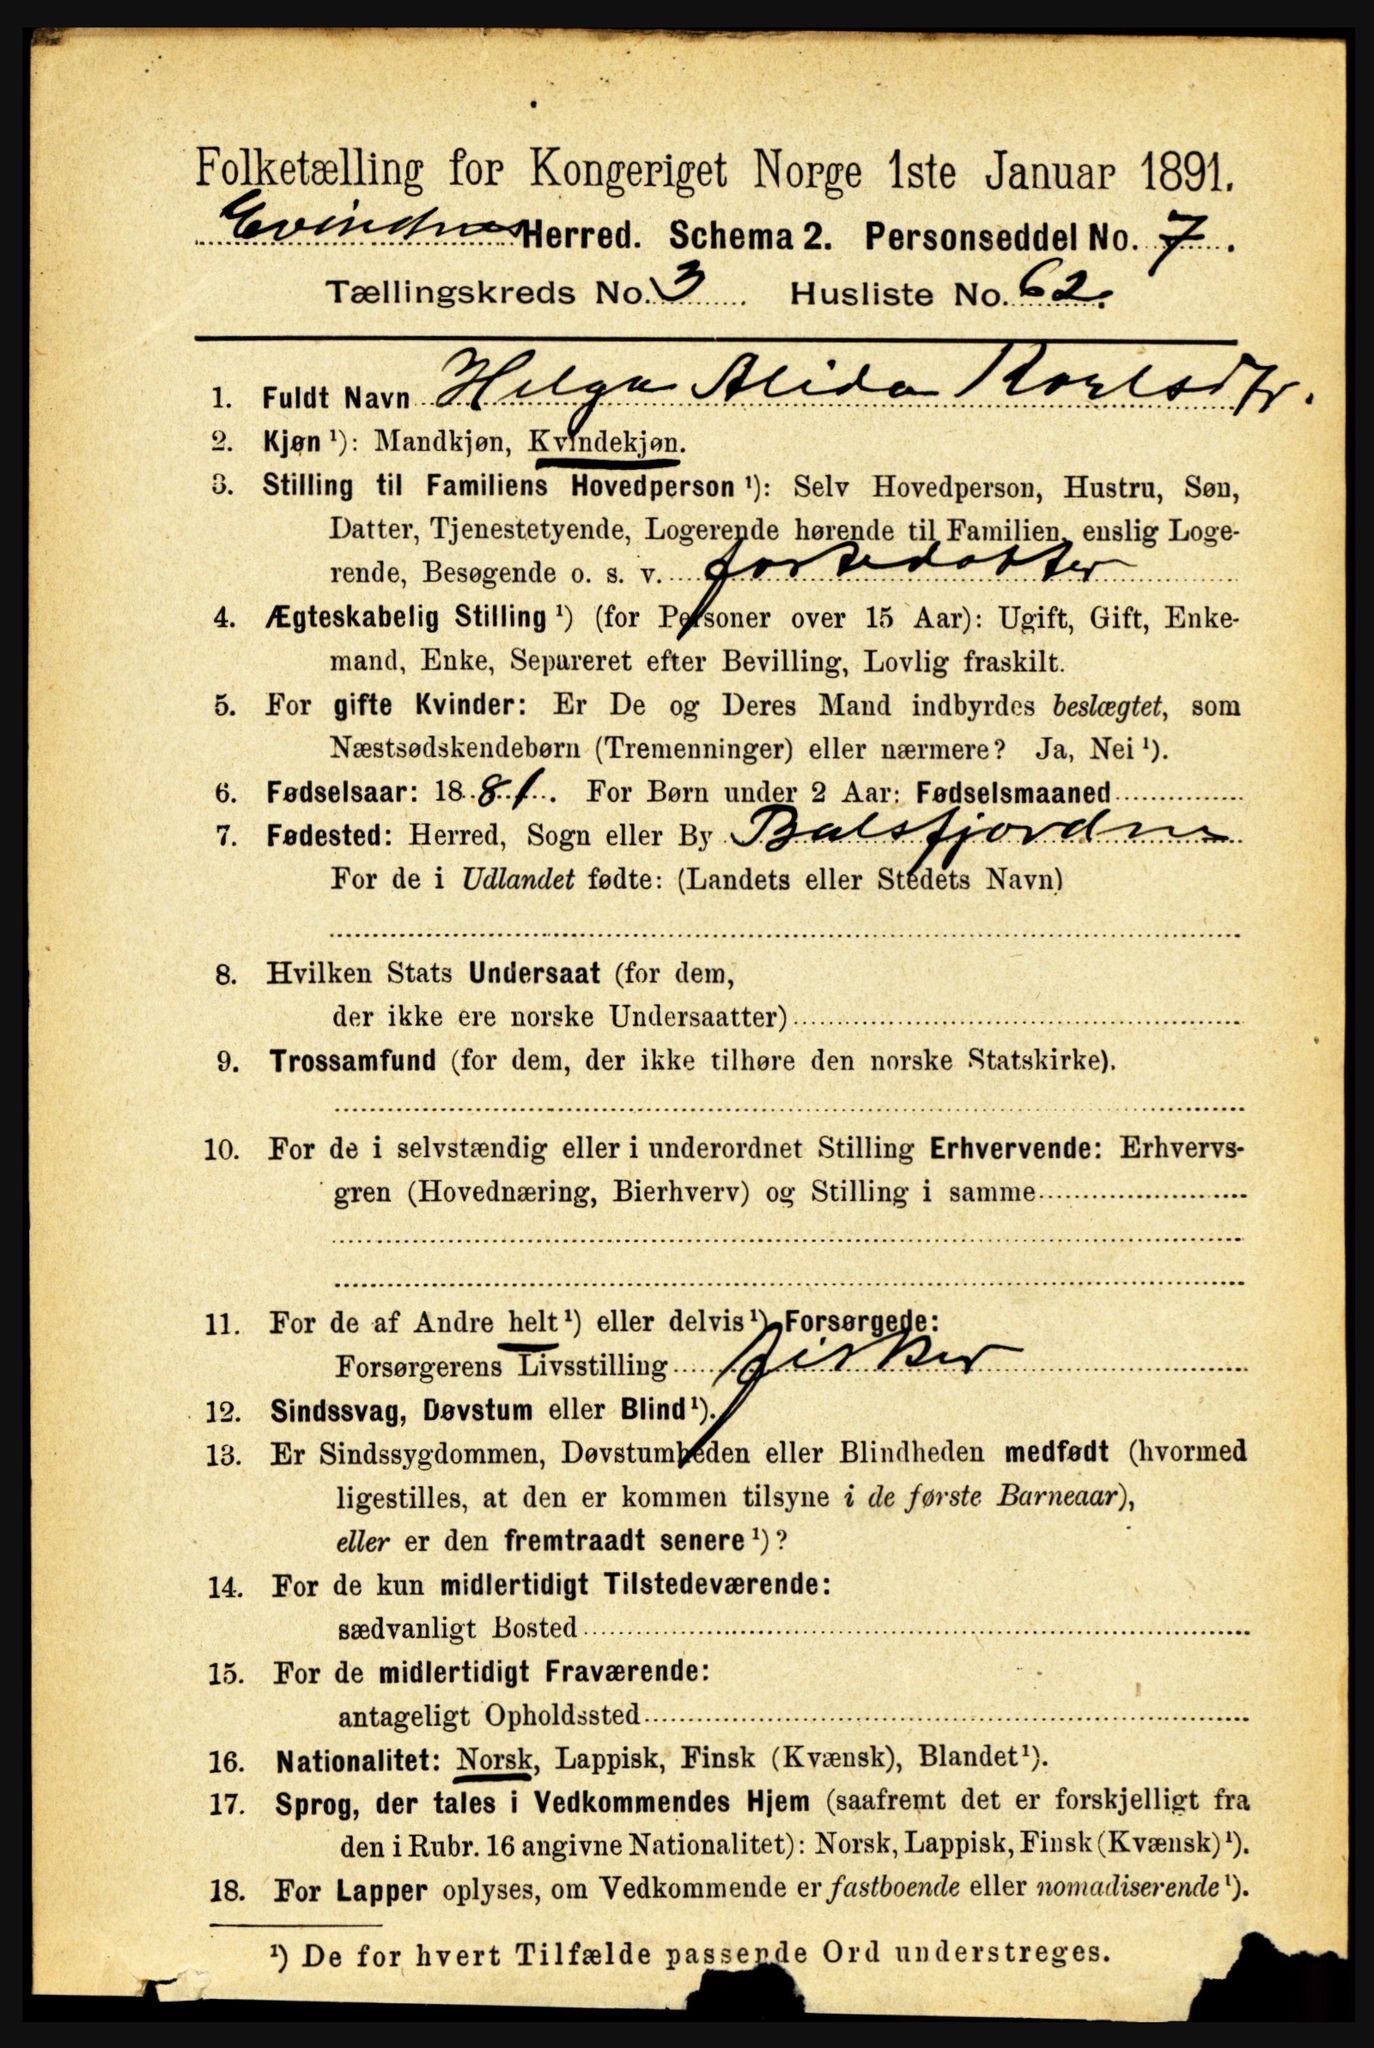 Folketælling for Kongeriget Norge 1ste Januar 1891.
Evindnes Herred. Schema 2. Personseddel No. 7.
Tællingskreds No. 3. Husliste No. 62.
1. Fuldt Navn Helga Alida Karlsdtr.
2. Kjøn ¹): Mandkjøn, Kvindekjøn.
3. Stilling til Familiens Hovedperson ¹): Selv Hovedperson, Hustru, Søn,
Datter, Tjenestetyende, Logerende hørende til Familien, enslig Loge-
rende, Besøgende o. s. v. fostedatter
4. Ægteskabelig Stilling ¹) (for Personer over 15 Aar): Ugift, Gift, Enke-
mand, Enke, Separeret efter Bevilling, Lovlig fraskilt.
5. For gifte Kvinder: Er De og Deres Mand indbyrdes beslægtet, som
Næstsødskendebørn (Tremenninger) eller nærmere? Ja, Nei ¹).
6. Fødselsaar: 1881. For Børn under 2 Aar: Fødselsmaaned
7. Fødested: Herred, Sogn eller By Balsfjorden
For de i Udlandet fødte: (Landets eller Stedets Navn)
8. Hvilken Stats Undersaat (for dem,
der ikke ere norske Undersaatter)
9. Trossamfund (for dem, der ikke tilhøre den norske Statskirke).
10. For de i selvstændig eller i underordnet Stilling Erhvervende: Erhvervs-
gren (Hovednæring, Bierhverv) og Stilling i samme
11. For de af Andre helt ¹) eller delvis ¹) Forsørgede:
Forsørgerens Livsstilling fisker
12. Sindssvag, Døvstum eller Blind ¹).
13. Er Sindssygdommen, Døvstumheden eller Blindheden medfødt (hvormed
ligestilles, at den er kommen tilsyne i de første Barneaar),
eller er den fremtraadt senere ¹)?
14. For de kun midlertidigt Tilstedeværende:
sædvanligt Bosted
15. For de midlertidigt Fraværende:
antageligt Opholdssted
16. Nationalitet: Norsk, Lappisk, Finsk (Kvænsk), Blandet ¹).
17. Sprog, der tales i Vedkommendes Hjem (saafremt det er forskjelligt fra
den i Rubr. 16 angivne Nationalitet): Norsk, Lappisk, Finsk (Kvænsk) ¹).
18. For Lapper oplyses, om Vedkommende er fastboende eller nomadiserende ¹).
¹) De for hvert Tilfælde passende Ord understreges.